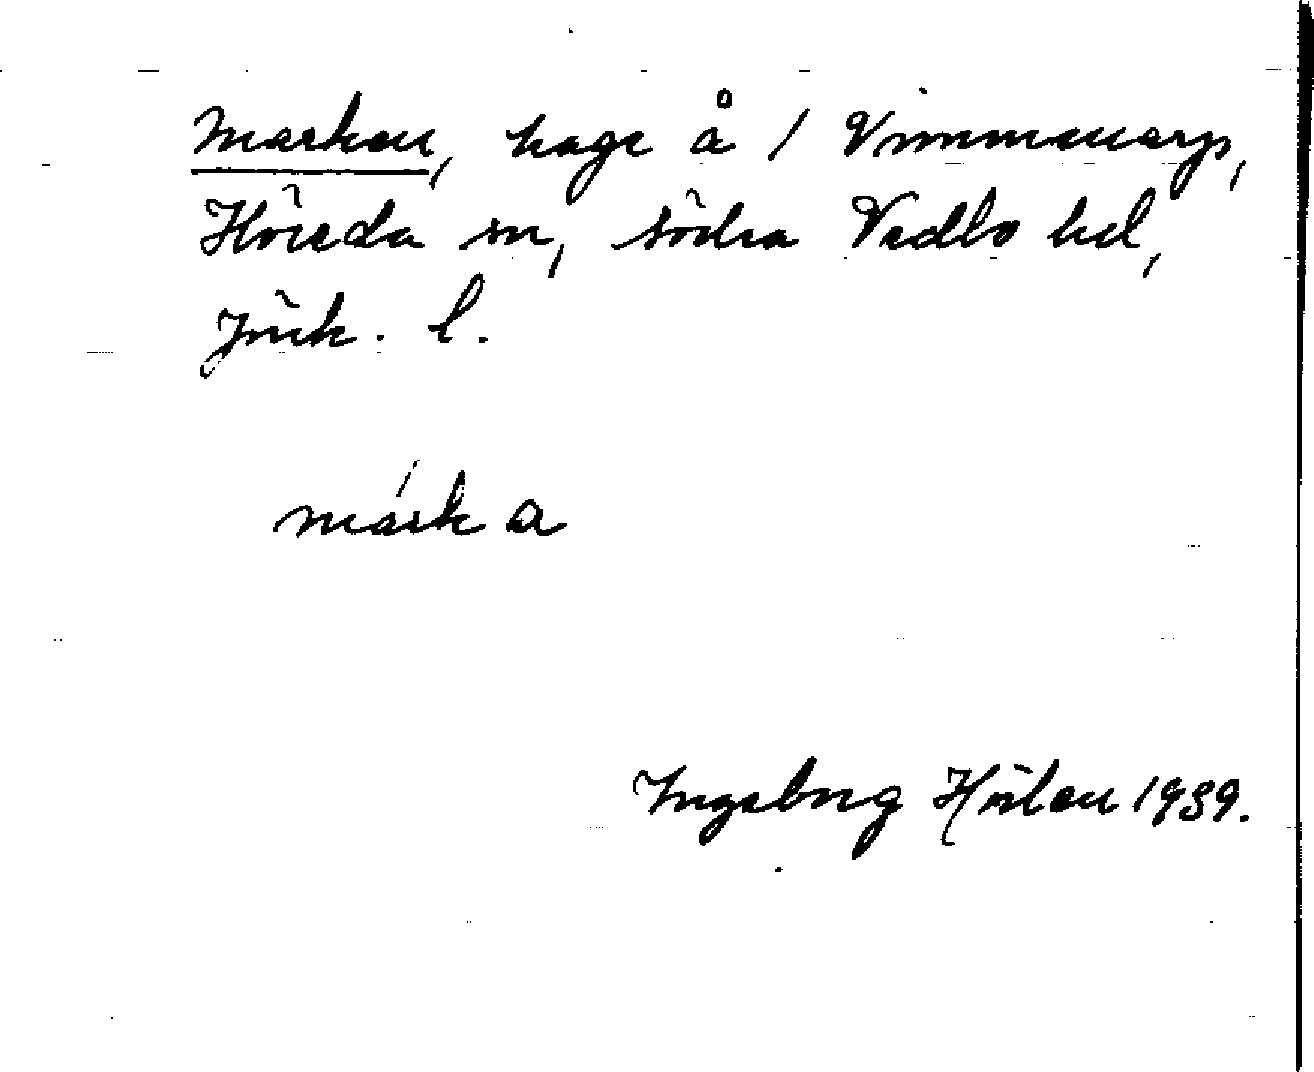 Marken, hage å 1 Vimmenarp,
Höreda sn, södra Vedbo hd,
Jönk. l.
márk a
Ingeborg Hülen 1939.